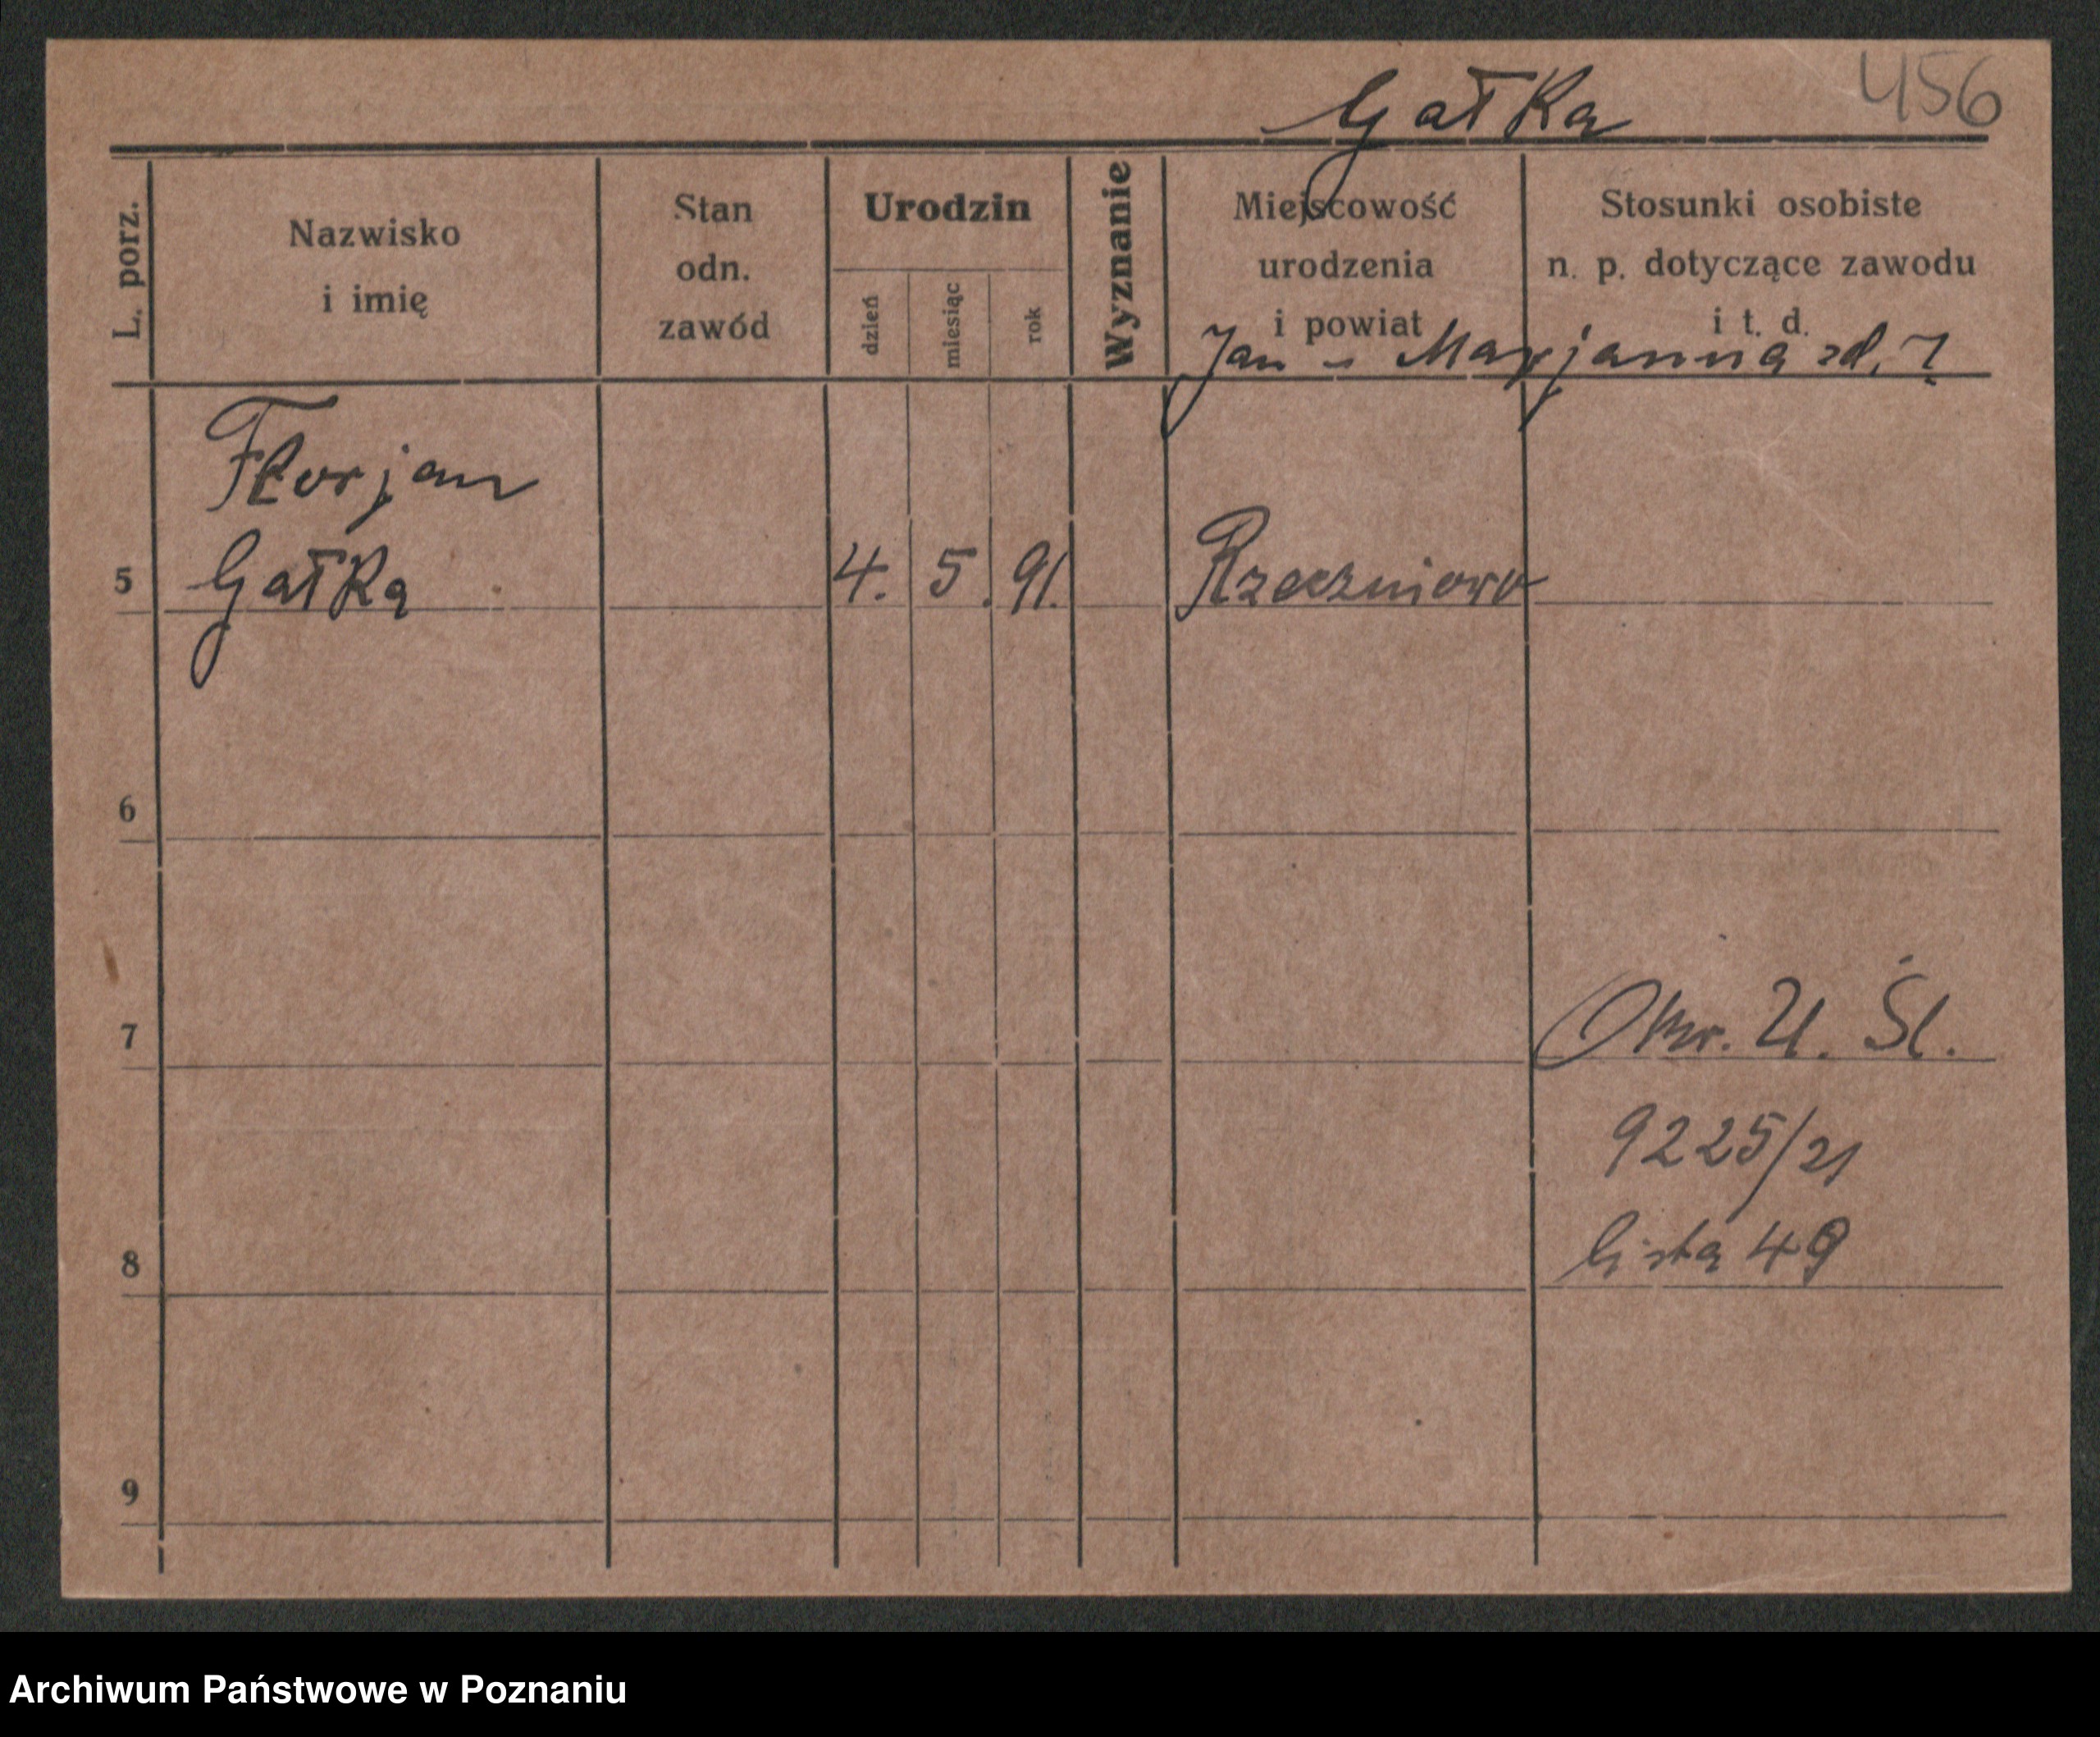 Gałka 456
L. porz.
Nazwisko
i imię
Stan
odn.
zawód
Urodzin
dzień
miesiąc
rok
Wyznanie
Miejscowość
urodzenia
i powiat
Stosunki osobiste
n. p. dotyczące zawodu
i t. d.
Jan - Marjanna zd. ?
Florjan
5 Gałka 4. 5. 91. Rzeczniowo
6
7 Okr. U. Śl.
9225/21
8 lista 49
9
Archiwum Państwowe w Poznaniu